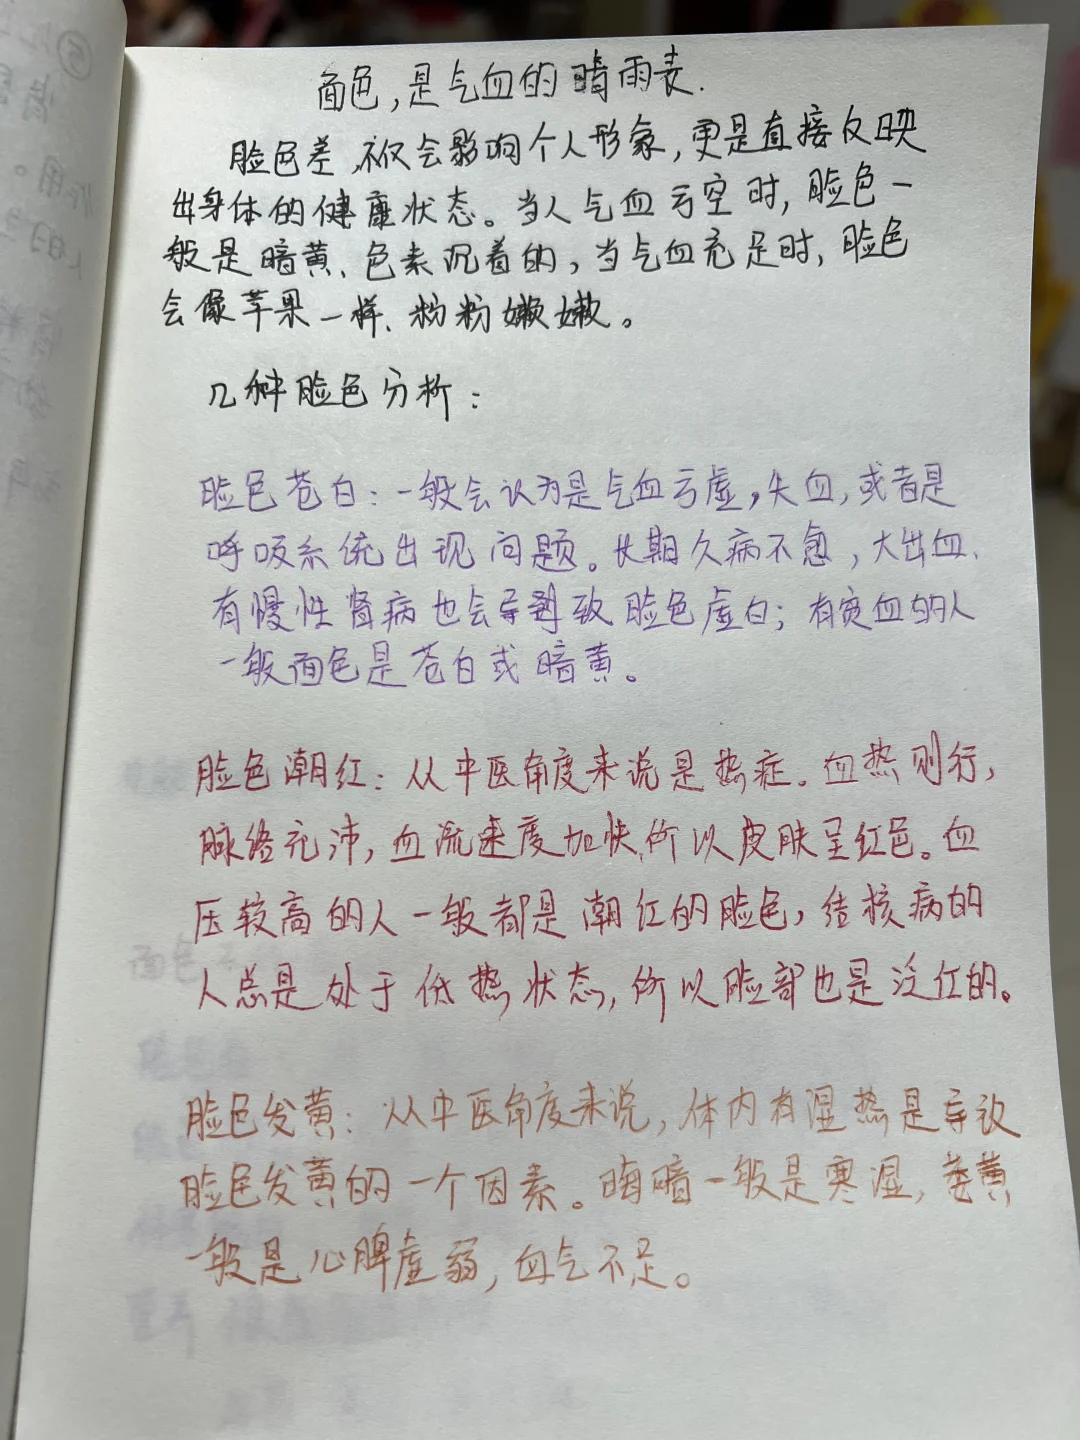 面色,是气血的晴雨表.
脸色差,不仅会影响个人形象,更是直接反映
出身体的健康状态。当人气血亏空时,脸色一
般是暗黄、色素沉着的,当气血充足时,脸色
会像苹果一样、粉粉嫩嫩。
几种脸色分析:
脸色苍白:一般会认为是气血亏虚,失血,或者是
呼吸系统出现问题。长期久病不愈,大出血、
有慢性肾病也会导致脸色虚白;有贫血的人
一般面色是苍白或暗黄。
脸色潮红:从中医角度来说是热症。血热则行,
脉络充沛,血流速度加快,所以皮肤呈红色。血
压较高的人一般都是潮红的脸色,结核病的
人总是处于低热状态,所以脸部也是泛红的。
脸色发黄:从中医角度来说,体内有湿热是导致
脸色发黄的一个因素。晦暗一般是寒湿,萎黄
一般是心脾虚弱,血气不足。